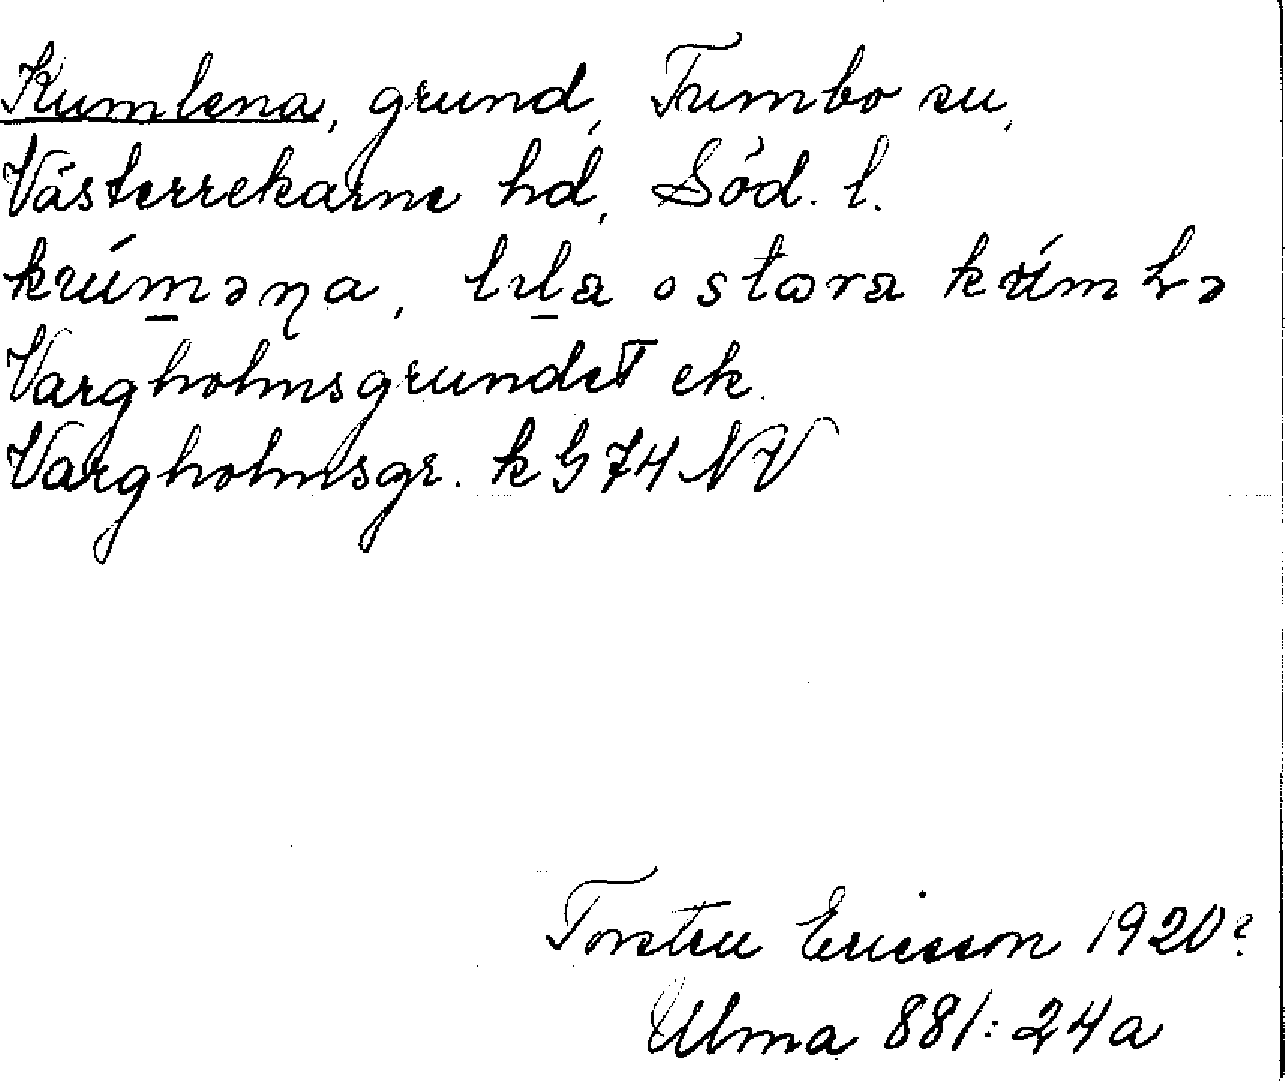 Kumlena, grund, Tumbo sn,
Västerrekarne hd, Söd. l.
Vargholmsgrundet ek.
Vargholmsgr. k G74 NV
Torsten Ericsson 1920?
Ulma 881:24a